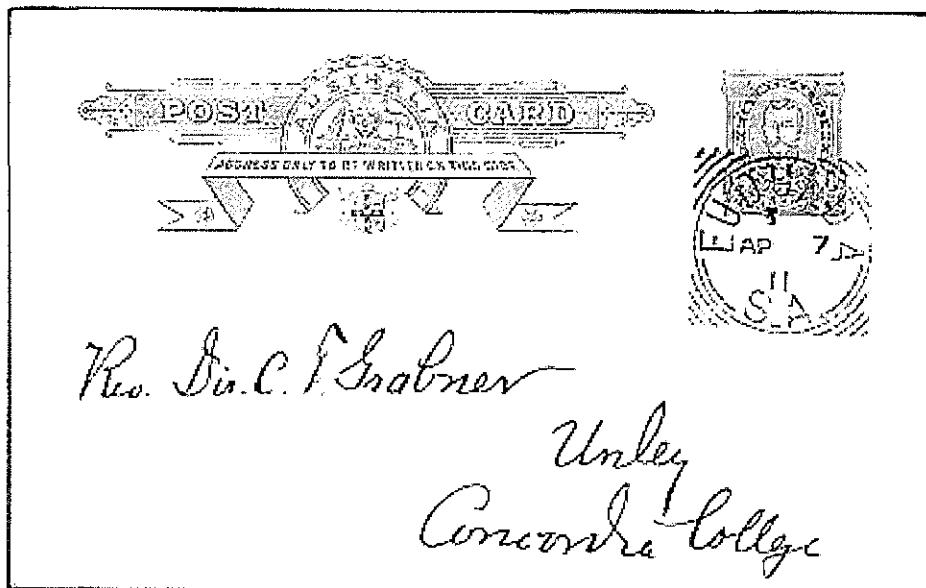 POST AUSTRALIA CARD
ADDRESS ONLY TO BE WRITTEN ON THIS SIDE.
EUDUNDA
AP 7
11
S.A
Rev. Dir. C. F. Grabner
Unley
Concordia College